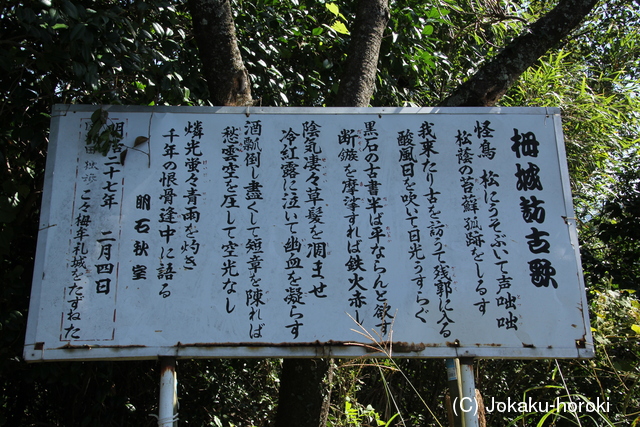 栂城訪古歌
怪鳥 松にうそぶいて声咄咄
松蔭の苔蘚狐跡をしるす
我来たり古を訪うて残郭に入る
酸風日を吹いて日光うすらぐ
黒石の古書半ば平ならんと欲す
断鏃を摩洓すれば鉄火赤し
陰気凄々草髪を凋ませ
冷紅露に泣いて幽血を凝らす
酒瓢倒し盡くして短章を陳れば
愁雲空を圧して空光なし
燐光蛍々青雨を灼き
千年の恨骨逢中に語る
明石秋室
明治二十七年 二月四日
こゝ栂牟礼城をたずねた
(C) Jokaku-horoki